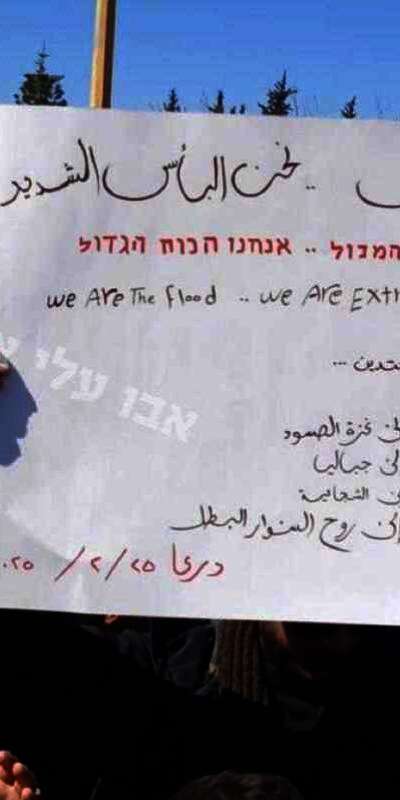 .. نحن البأس الشديد
המבול .. אנחנו הכוח הגדול
we Are The flood .. we Are Extr
אבו עלי
تدين ...
لى غزة الصمود
لى جباليا
ى الشجاعية
إلى روح السنوار البطل
درعا ٢٥ / ٢ / ٠٢٥